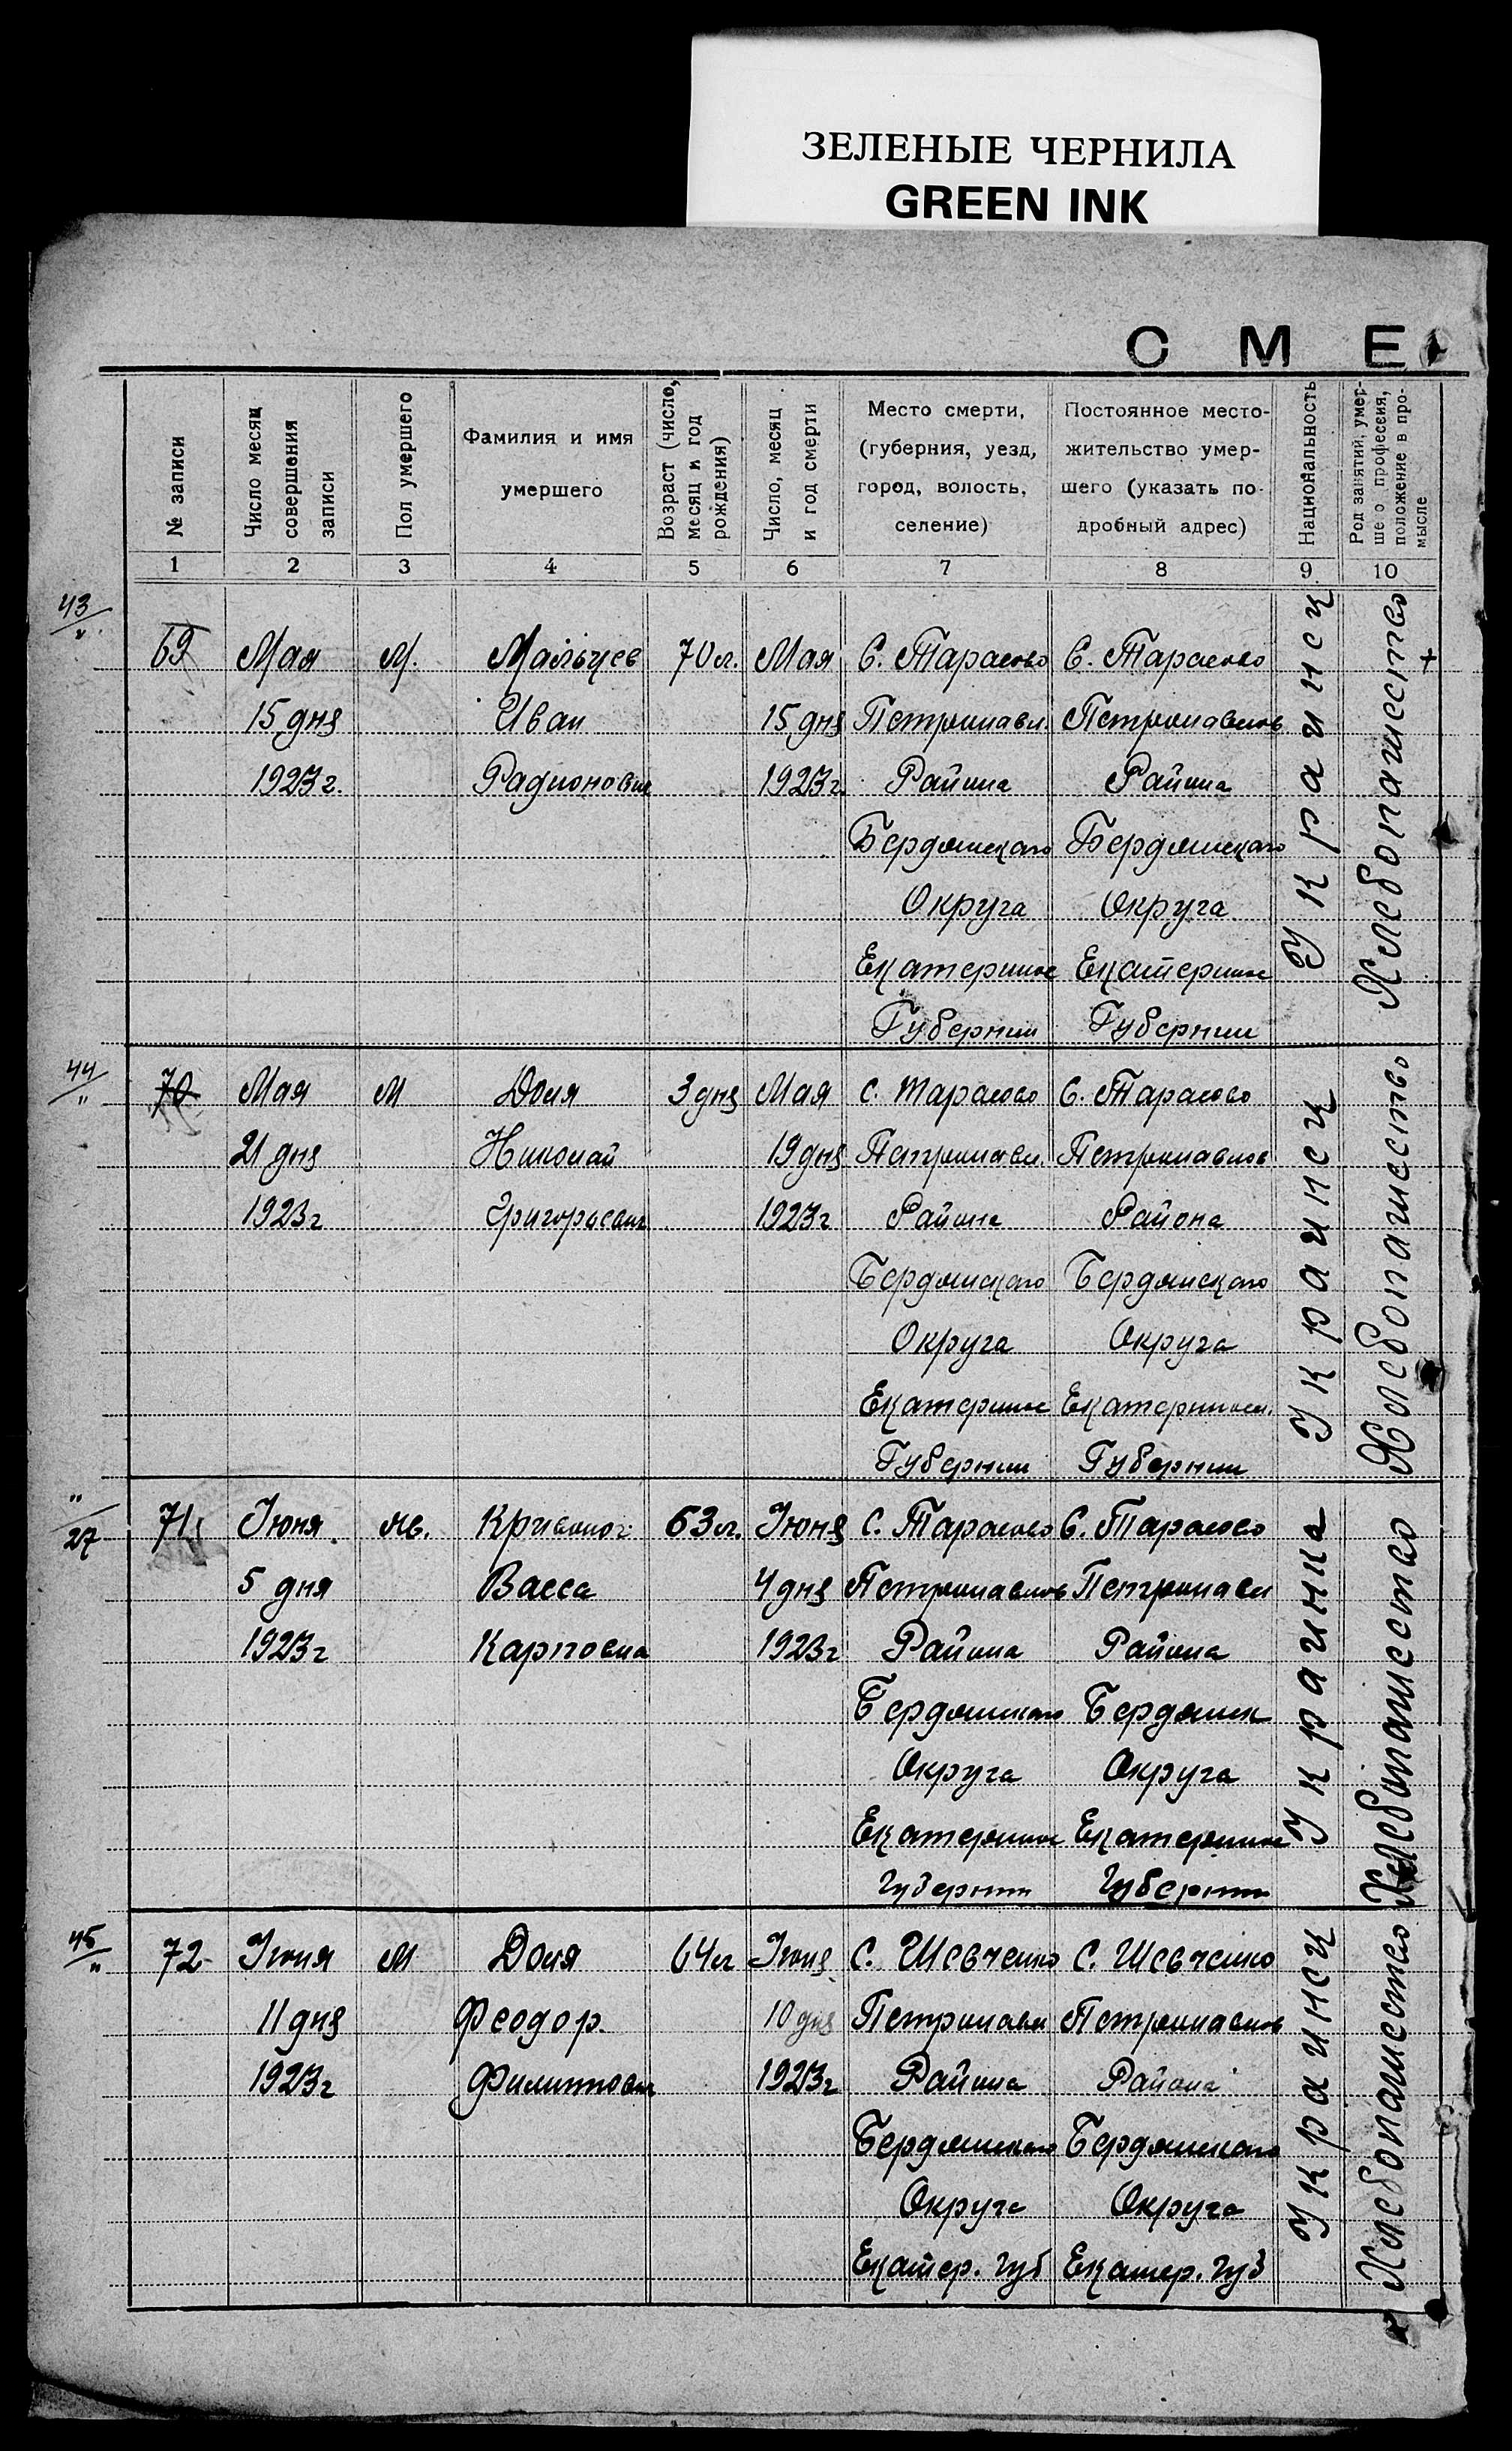 ЗЕЛЕНЫЕ ЧЕРНИЛА
GREEN INK
С М Е
№ записи
Число месяц совершения записи
Пол умершего
Фамилия и имя умершего
Возраст (число, месяц и год рождения)
Число, месяц и год смерти
Место смерти, (губерния, уезд, город, волость, селение)
Постоянное местожительство умершего (указать подробный адрес)
Национальность
Род занятий, умершего профессия, положение в промысле
1 2 3 4 5 6 7 8 9 10
43
69 Мая М. Мальцев 70 л. Мая С. Тарасово С. Тарасово
15 дня Иван 15 дня Петропавл. Петропавлов
1923 г. Радионович 1923 г. Района Района
Бердянского Бердянского
Округа Округа
Екатеринос Екатеринос
Губернии Губернии
Украинец
Хлебопашество
44
70 Мая М Доля 3 дня Мая С. Тарасово С. Тарасово
21 дня Николай 19 дня Петропавл. Петропавлов
1923 г Григорьевич 1923 г Района Района
Бердянского Бердянского
Округа Округа
Екатеринос Екатериносл.
Губернии Губернии
Украинец
Хлебопашество
27
71 Июня Жв. 63 л. Июня С. Тарасово С. Тарасово
5 дня Васса 4 дня Петропавлов Петропавл
1923 г Карповна 1923 г Района Района
Бердянского Бердянск
Округа Округа
Екатеринос Екатеринос
Губернии Губернии
Украинка
Хлебопашество
45
72 Июня М Доля 64 л Июня С. Шевченко С. Шевченко
11 дня Феодор. 10 дня Петропавл Петропавлов
1923 г Филиппович 1923 г Района Района
Бердянского Бердянского
Округа Округа
Екатер. Губ Екатер. Губ
Украинец
Хлебопашество